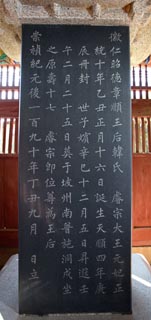 徽仁昭德章順王后韓氏 睿宗大王元妃正
統十年乙丑正月十六日誕生天順四年庚
辰冊封 世子嬪辛巳十二月五日昇遐壬
午二月二十五日葬于坡州南普龍洞戌坐
之原壽十七 睿宗卽位尊爲王后
崇禎紀元後一百九十年丁丑九月 日立